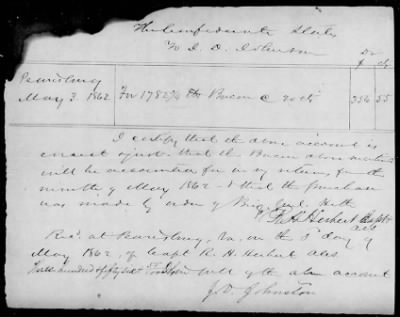 The Confederate States
To J. D. Johnston
Dr
$ cts
Pearisburg
May 3. 1862 For 1782¾ lbs Bacon @ 20 cts 356 55
I certify that the above account is
correct & just. that the Bacon above mentioned
will be accounted for in my returns for the
month of May 1862 & that the purchase
was made by order of Brig Genl. Heth
R. H. Herbert Capt &
ACS
Recd. at Pearisburg, Va. on the 3d day of
May 1862, of Capt R. H. Herbert ACS
Three hundred & fifty six 55/100 Dollars in full of the above account
J. D. Johnston